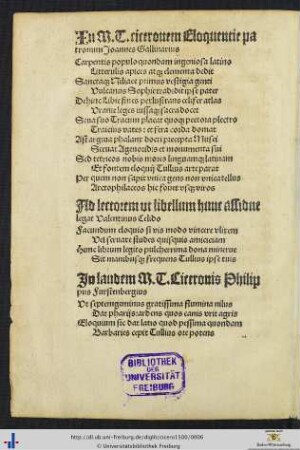 In M. T. ciceronem Eloquentie pa
tronum Joannes Gallinarius
Carpentis populo quondam ingeniosa latino
Litterulis apices atque elementa dedit
Sanctaque Niliace primus vestigia genti
Vulcanus Sophie tradidit ipse pater
Dehinc Libie fines perlustrans celifer atlas
Uranie leges iussaque sacra docet
Sena suo Tracum placat quoque pectora plectro
Traicius vates: et fera corda domat
Ast argiua phalanx docti precepta Musei
Scenat Agenoridis et monumenta sui
Sed tetricos nobis mores linguamque latinam
Et fontem eloquii Tullius arte parat
Per quam non sapit vnica gens non vnica tellus
Arctophilaceos hic fouet vsque viros
Ad lectorem vt libellum hunc assidue
legat Valentinus Celido
Facundum eloquio si vis modo vincere vlixem
Vel seruare studes quisquis amicitiam
Hunc librum legito pulcherrima dona mineruе
Sit manibusque frequens Tullius ipse tuis
In laudem M. T. Ciceronis Philip
pus Furstenbergius
Ut septemgeminus gratissima flumina nilus
Dat phariis: ardens quos canis vrit agris
Eloquium sic dat latio quod pessima quondam
Barbaries cepit Tullius ore potens
BIBLIOTHEK
DER
UNIVERSITÄT
FREIBURG
http://dl.ub.uni-freiburg.de/diglit/cicero1500/0006
© Universitätsbibliothek Freiburg
Baden-Württemberg